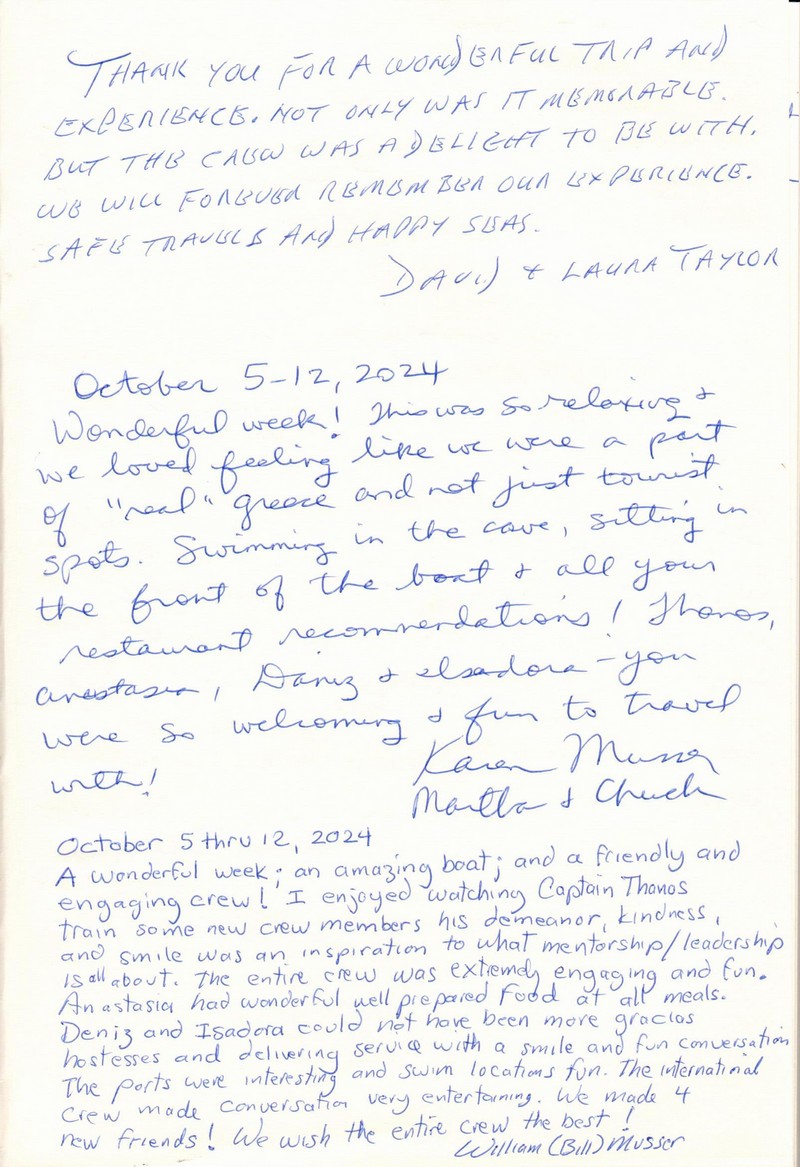 THANK YOU FOR A WONDERFUL TRIP AND
EXPERIENCE. NOT ONLY WAS IT MEMORABLE.
BUT THE CREW WAS A DELIGHT TO BE WITH.
WE WILL FOREVER REMEMBER OUR EXPERIENCE.
SAFE TRAVELS AND HAPPY SEAS.
DAVID & LAURA TAYLOR
October 5-12, 2024
Wonderful week! This was so relaxing &
we loved feeling like we were a part
of "real" greece and not just tourist
spots. Swimming in the cave, sitting in
the front of the boat & all your
restaurant recommendations! Thanos,
anastasia, Daniz & elsadora - you
were so welcoming & fun to travel
with!
Karen Musser
Martha & Chuck
October 5 thru 12, 2024
A wonderful week; an amazing boat; and a friendly and
engaging crew! I enjoyed watching Captain Thanos
train some new crew members his demeanor, kindness,
and smile was an inspiration to what mentorship/leadership
is all about. The entire crew was extremely engaging and fun.
Anastasia had wonderful well prepared food at all meals.
Deniz and Isadora could not have been more gracios
hostesses and delivering service with a smile and fun conversation
The ports were interesting and swim locations fun. The international
crew made conversation very entertaining. We made 4
new friends! We wish the entire crew the best!
William (Bill) Musser